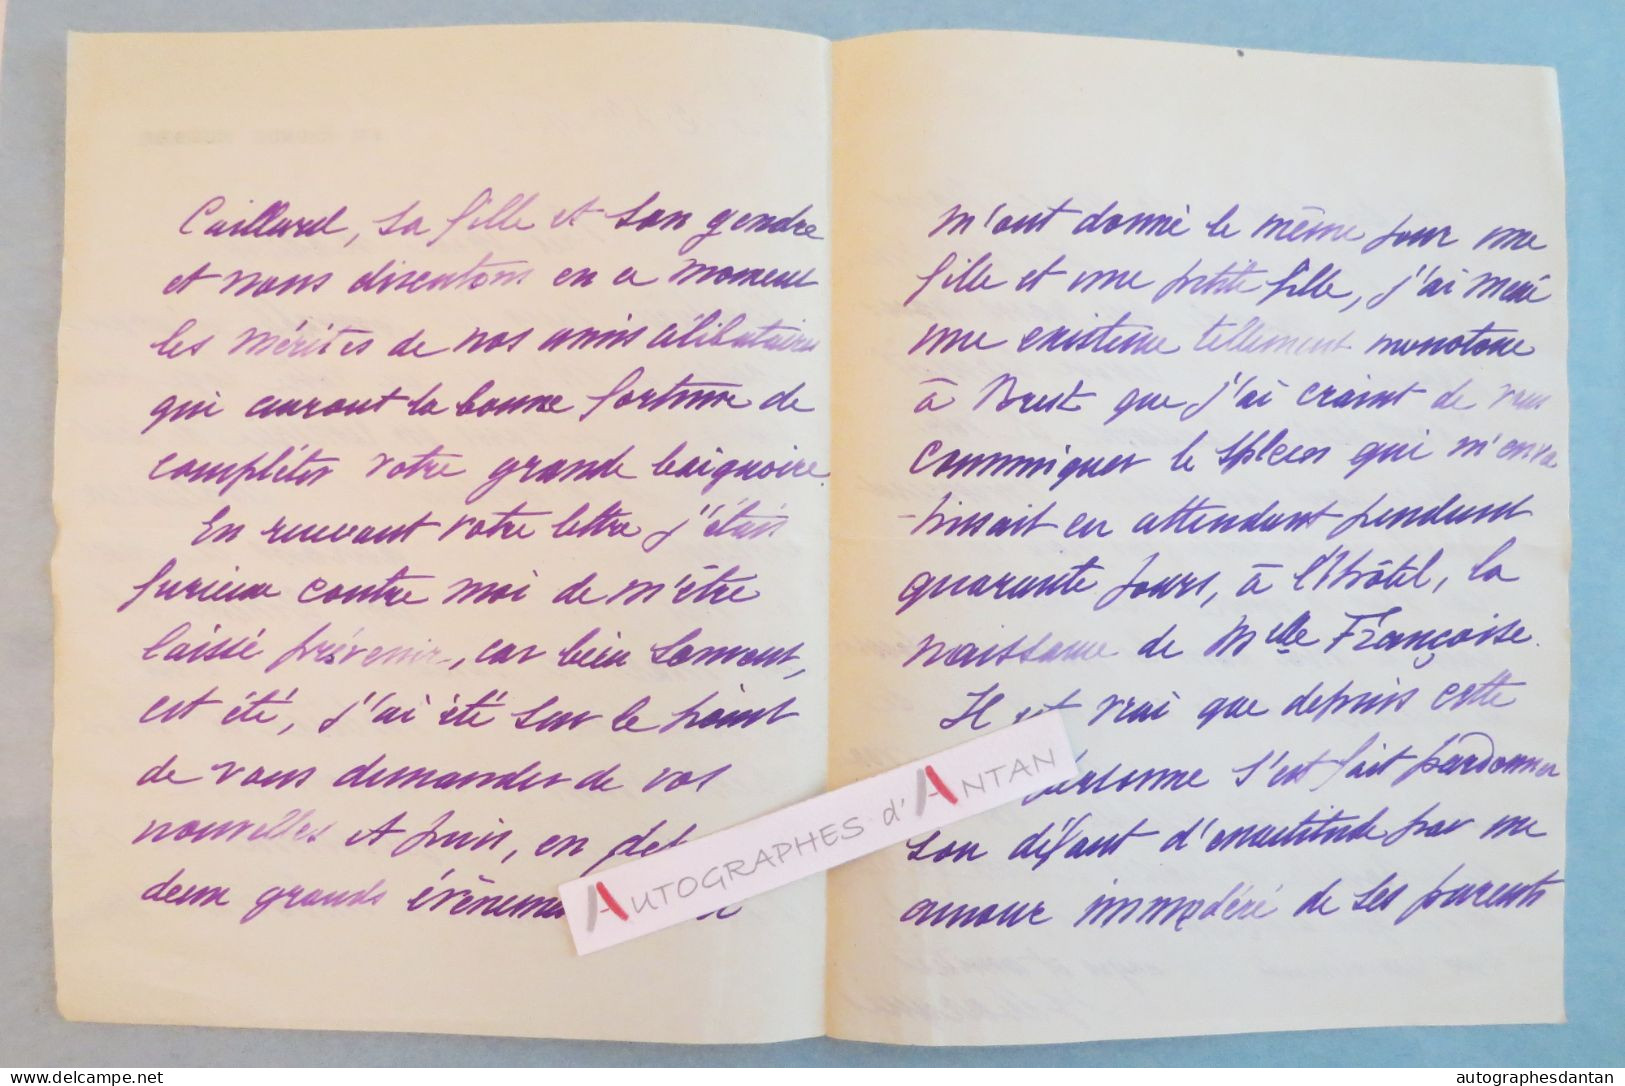 Caillard, sa fille et son gendre
et nous discutons en ce moment
les mérites de nos amis célibataires
qui auront la bonne fortune de
compléter votre grande baignoire.
En recevant votre lettre j'étais
furieux contre moi de m'être
laissé prévenir, car bien souvent,
cet été, j'ai été sur le point
de vous demander de vos
nouvelles et puis, en de
deux grands évènemen
m'ont donné le même jour une
fille et une petite fille, j'ai mené
une existence tellement monotone
à Brest que j'ai craint de vous
communiquer le spleen qui m'enva
-hissait en attendant pendant
quarante jours, à l'hôtel, la
naissance de Mlle Françoise.
Il est vrai que depuis cette
personne s'est fait pardonner
son défaut d'exactitude par une
amour immodéré de ses parents
AUTOGRAPHES d'ANTAN
autographesdantan
www.delcampe.net